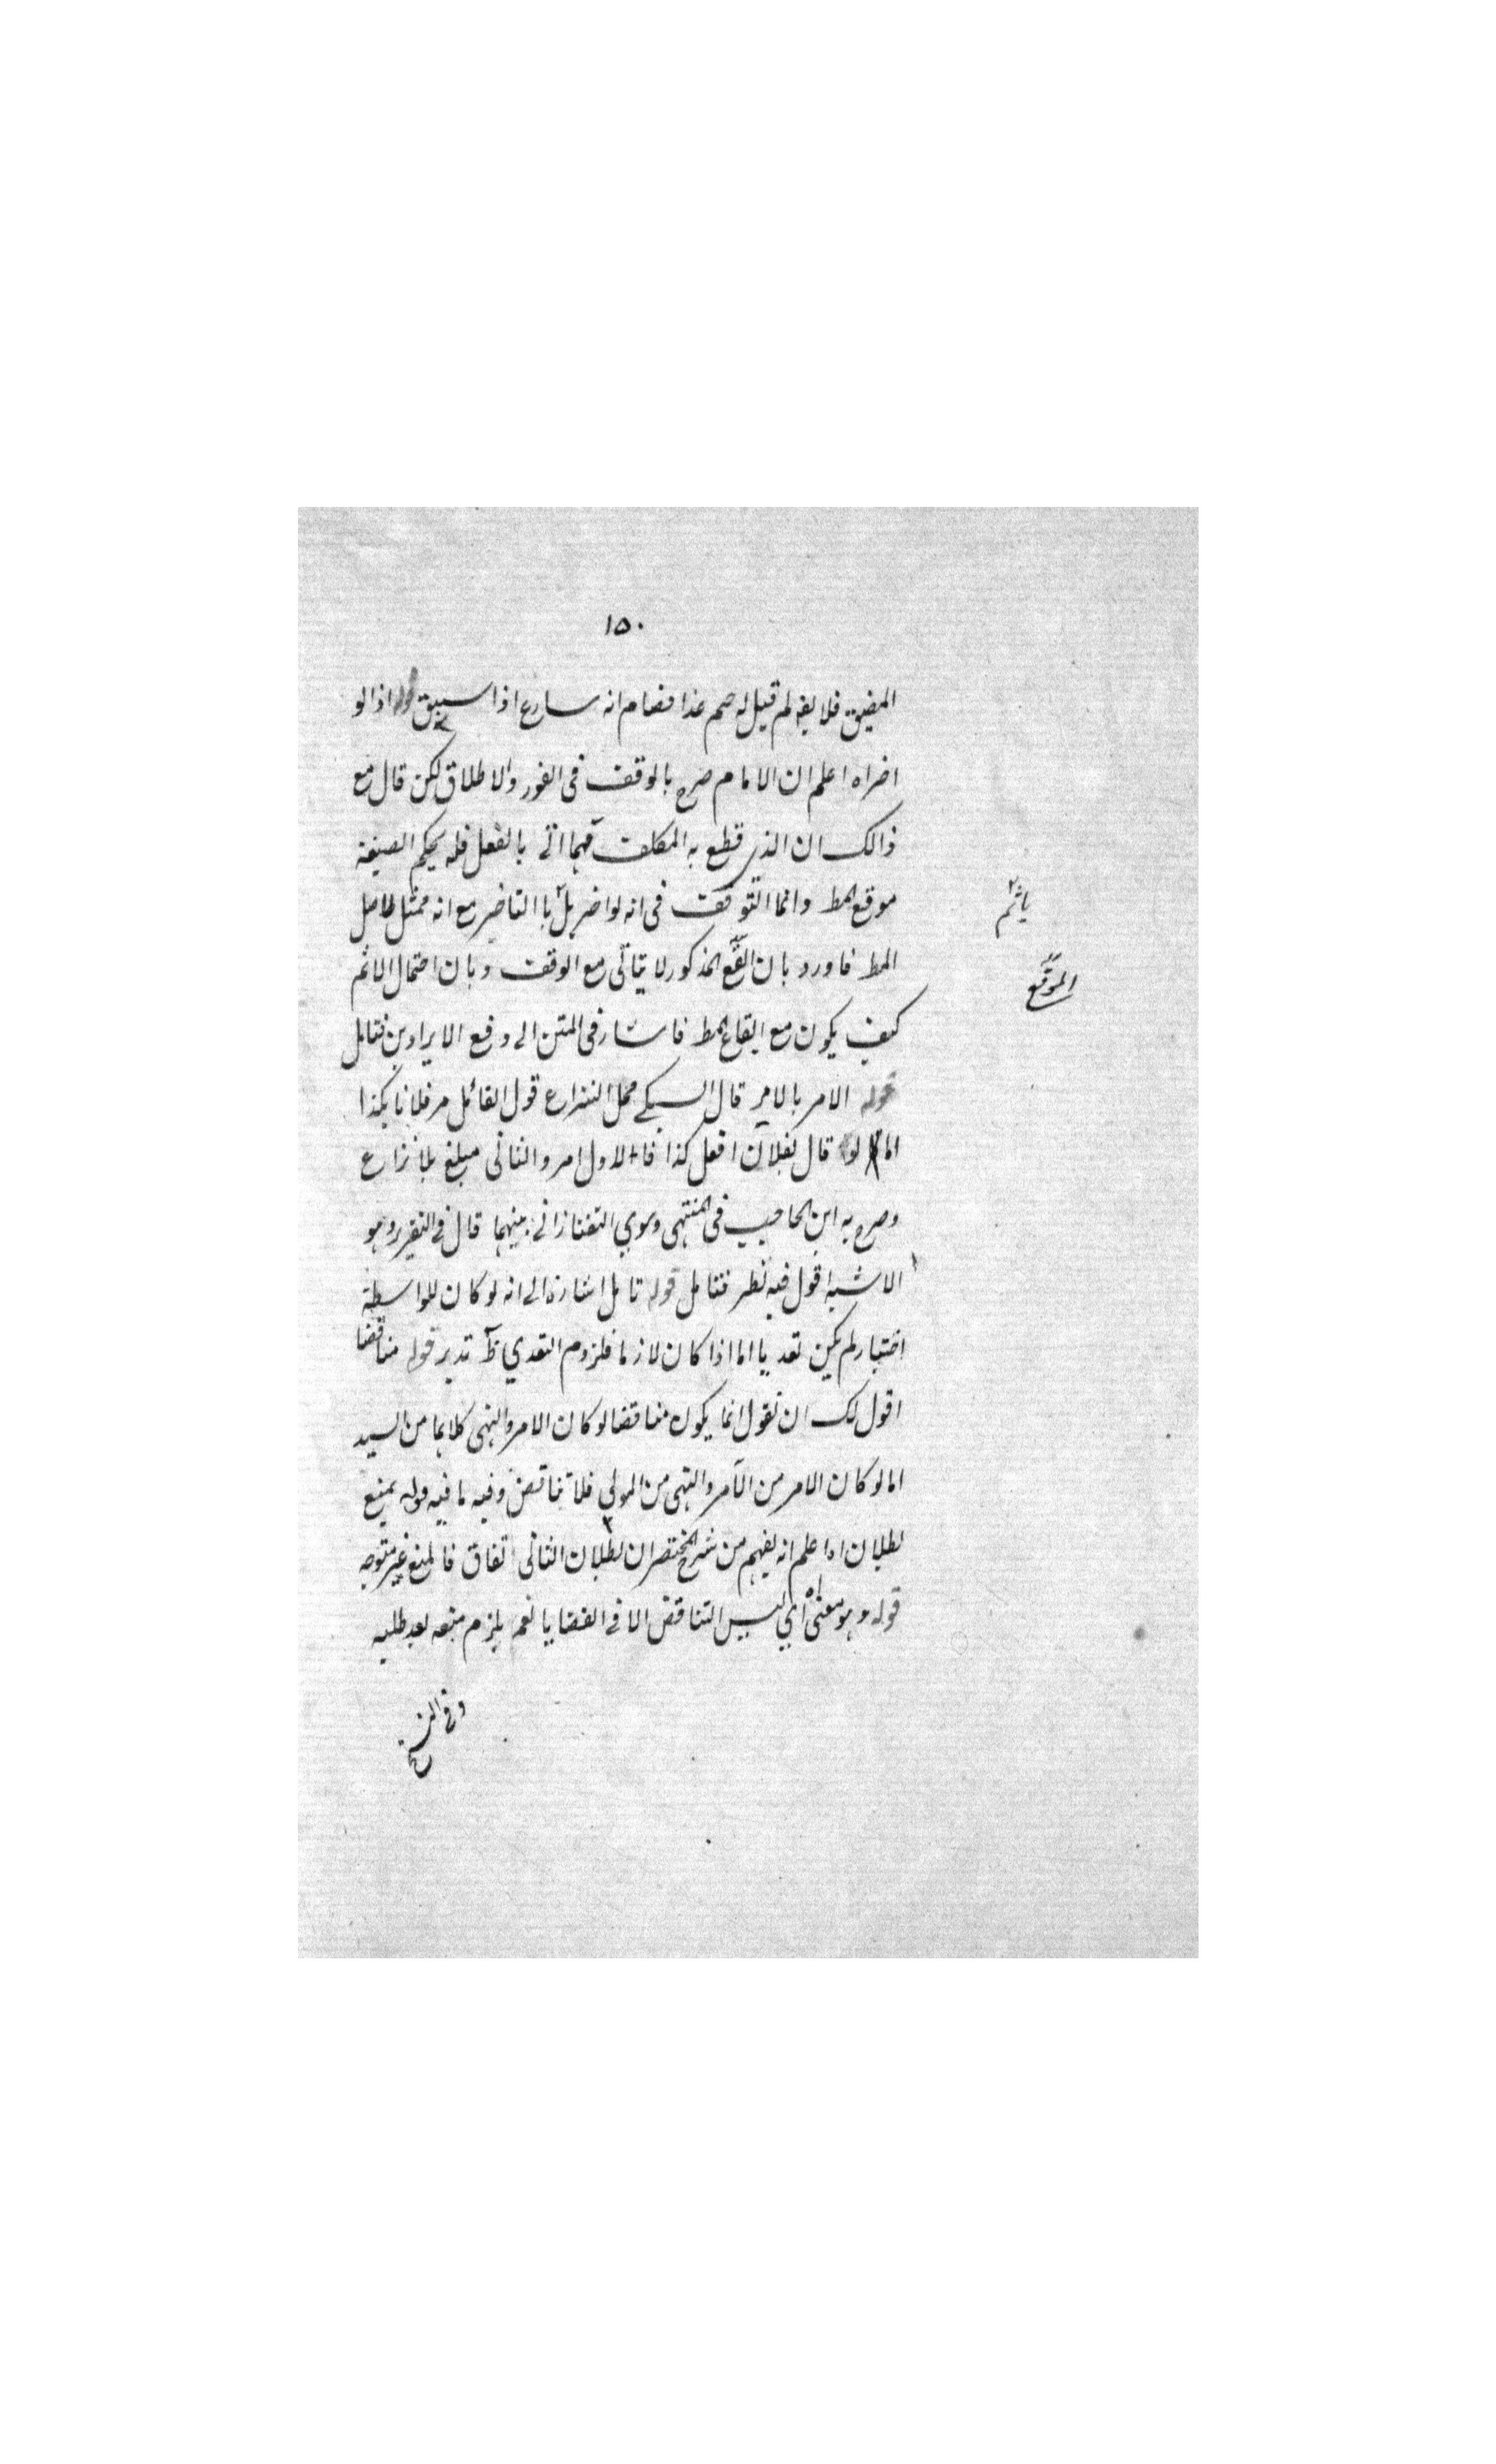 ١٥٠
المضيق فلا يقه لم قيل له صم غدا فصام انه سارع اذا سبق قوله اذ الو
اخراه اعلم ان الامام صرح بالوقف فى الفور والاطلاق لكن قال مع
ذالك ان الذى قطع به المكلف مهما اتى بالفعل فله بحكم الصيغة
موقع المط وانما التوقف فى انه لو اخر بل با التاخير مع انه ممثل لاصل
ياثم
المط فاورد بان القطع المذكور لا يتاتى مع الوقف وبان احتمال الاثم
الموقع
كيف يكون مع ايقاع المط فاشار فى المتن الى دفع الايرادين فتامل
قوله الامر بالامر قال السبكى محل النزاع قول القائل مر فلانا بكذا
اما لو قال لفلان افعل كذا فالاول امر والثانى مبلغ بلا نزاع
وصرح به ابن الحاجب فى المنتهى وسوى التفتازانى بينهما قال فى التقرير وهو
الاشبه اقول فيه نظر فتامل قوله تامل اشارة الى انه لو كان للواسطة
اختيار لم يكن تعديا اما اذا كان لازما فلزوم التعدي ظ تدبر قوله مناقضا
اقول لك ان تقول انما يكون مناقضا لو كان الامر والنهى كلاهما من السيد
اما لو كان الامر من الآمر والنهى من المولى فلا تناقض وفيه ما فيه قوله يمنع
بطلان اه اعلم انه يفهم من شرح المختصر ان بطلان الثانى اتفاق فالمنع غير متوجه
قوله وهو معنى اه اي ليس التناقض الا فى القضايا نعم يلزم منعه بعد طلبه
وفى الشرح